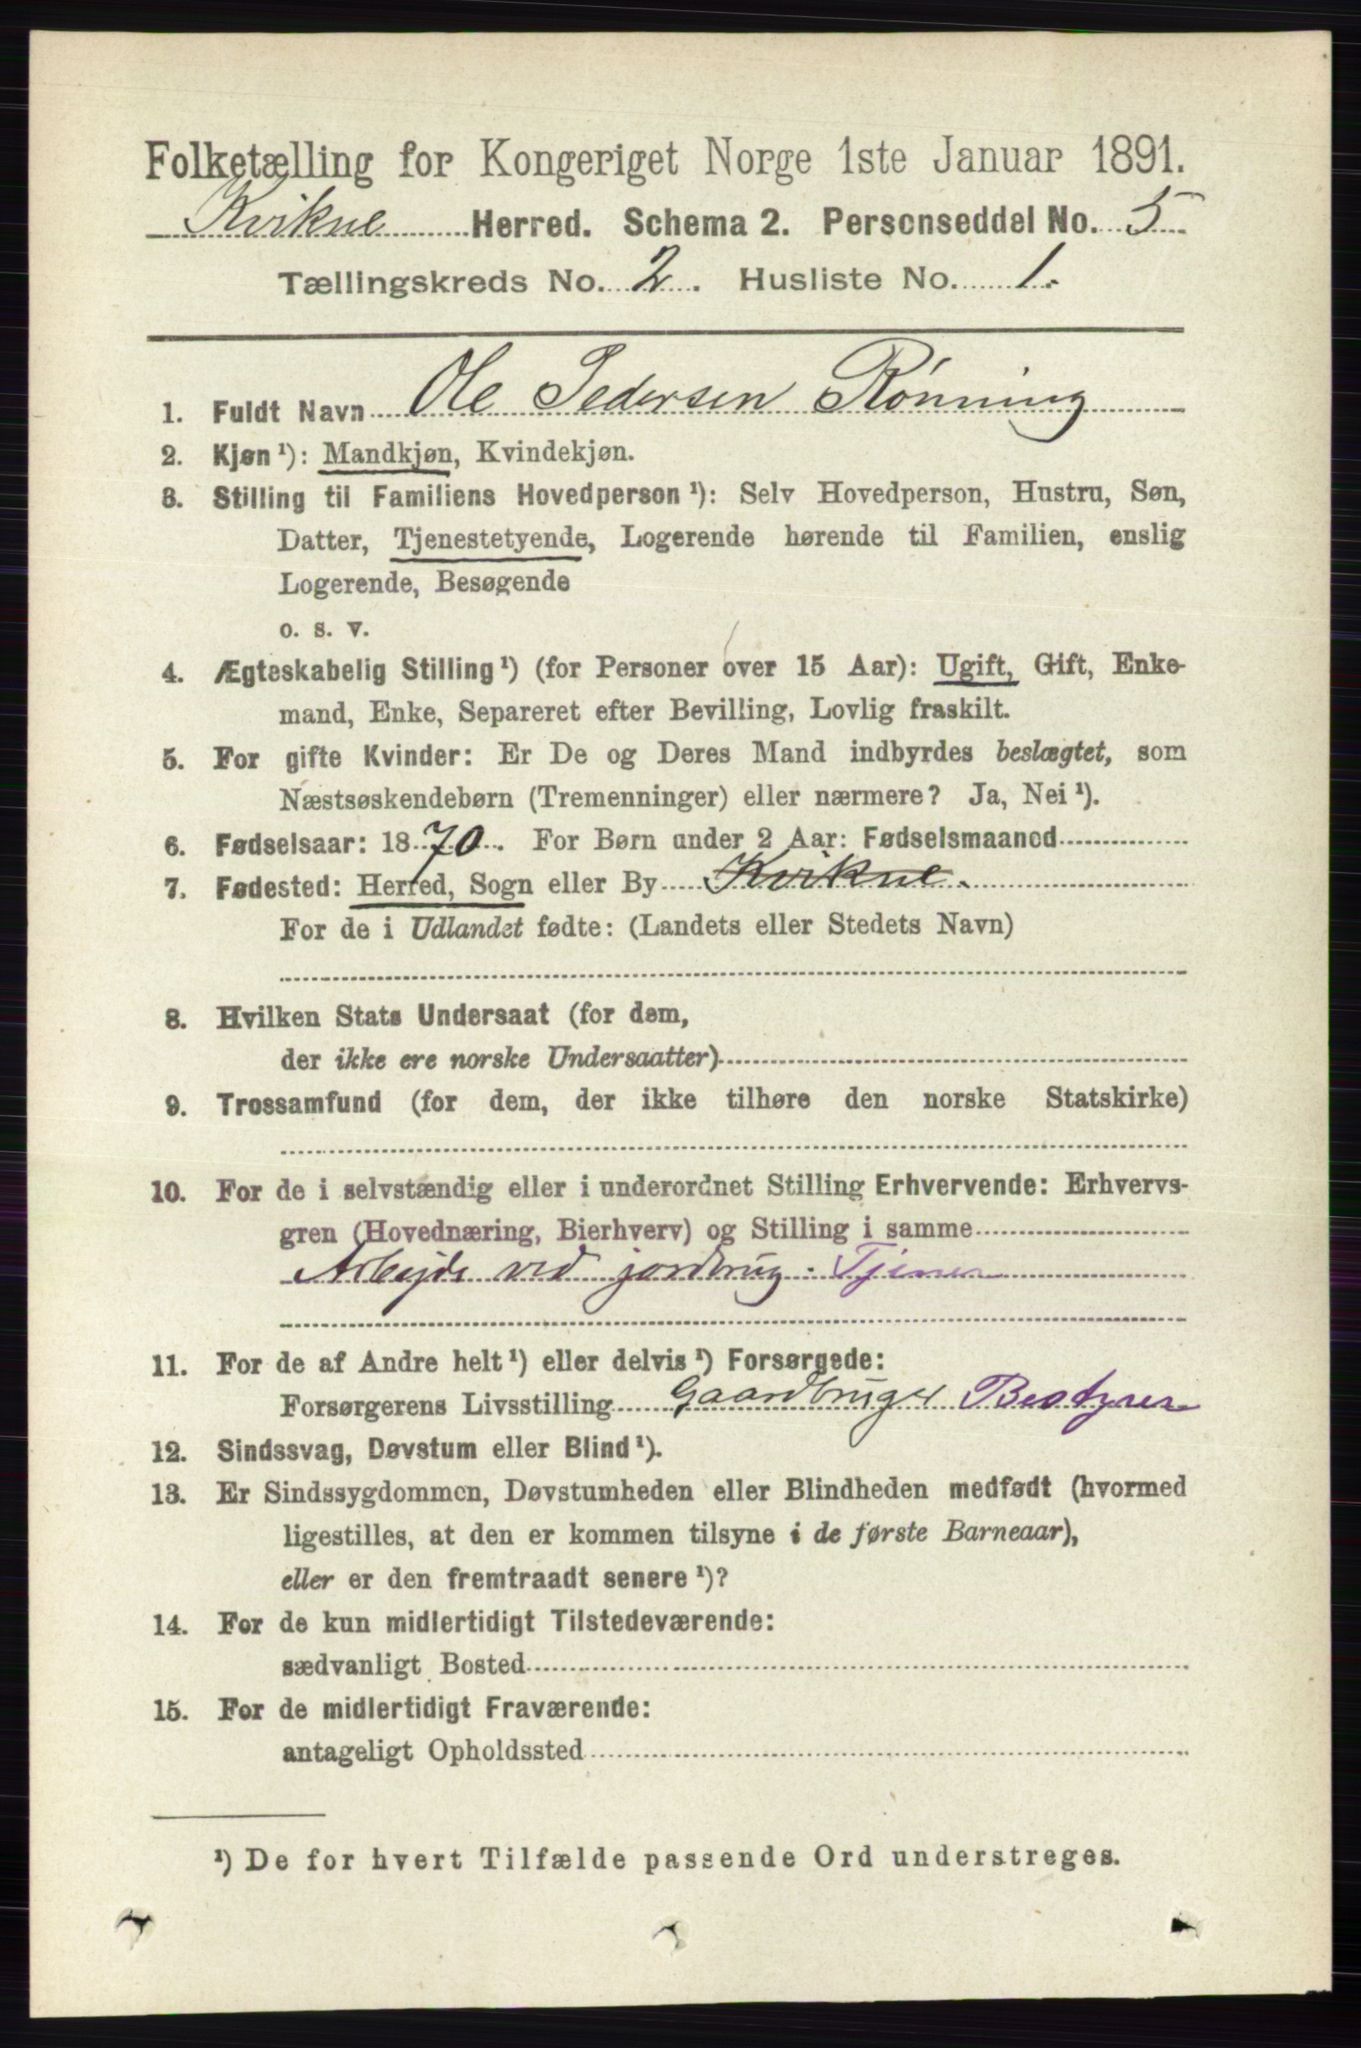 Folketælling for Kongeriget Norge 1ste Januar 1891.
Kvikne Herred. Schema 2. Personseddel No. 5
Tællingskreds No. 2. Husliste No. 1.
1. Fuldt Navn Ole Pedersen Rønning
2. Kjøn ¹): Mandkjøn, Kvindekjøn.
3. Stilling til Familiens Hovedperson ¹): Selv Hovedperson, Hustru, Søn,
Datter, Tjenestetyende, Logerende hørende til Familien, enslig
Logerende, Besøgende
o. s. v.
4. Ægteskabelig Stilling ¹) (for Personer over 15 Aar): Ugift, Gift, Enke-
mand, Enke, Separeret efter Bevilling, Lovlig fraskilt.
5. For gifte Kvinder: Er De og Deres Mand indbyrdes beslægtet, som
Næstsøskendebørn (Tremenninger) eller nærmere? Ja, Nei ¹).
6. Fødselsaar: 1870. For Børn under 2 Aar: Fødselsmaaned
7. Fødested: Herred, Sogn eller By Kvikne.
For de i Udlandet fødte: (Landets eller Stedets Navn)
8. Hvilken Stats Undersaat (for dem,
der ikke ere norske Undersaatter)
9. Trossamfund (for dem, der ikke tilhøre den norske Statskirke)
10. For de i selvstændig eller i underordnet Stilling Erhvervende: Erhvervs-
gren (Hovednæring, Bierhverv) og Stilling i samme
Arbejde ved jordbrug. Tjener
11. For de af Andre helt ¹) eller delvis ¹) Forsørgede:
Forsørgerens Livsstilling Gaardbruger Bestyrer
12. Sindssvag, Døvstum eller Blind ¹).
13. Er Sindssygdommen, Døvstumheden eller Blindheden medfødt (hvormed
ligestilles, at den er kommen tilsyne i de første Barneaar),
eller er den fremtraadt senere ¹)?
14. For de kun midlertidigt Tilstedeværende:
sædvanligt Bosted
15. For de midlertidigt Fraværende:
antageligt Opholdssted
¹) De for hvert Tilfælde passende Ord understreges.